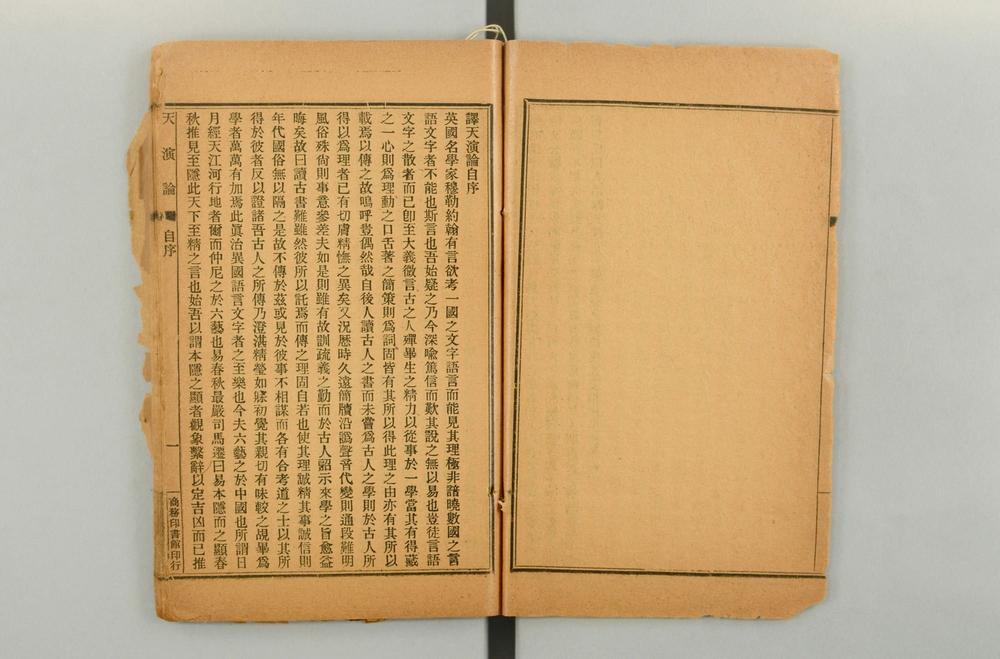 譯天演論自序
英國名學家穆勒約翰有言欲考一國之文字語言而能見其理極非諳曉數國之言
語文字者不能也斯言也吾始疑之乃今深喻篤信而歎其說之無以易也豈徒言語
文字之散者而已卽至大義微言古之人殫畢生之精力以從事於一學當其有得藏
之一心則爲理動之口舌著之簡策則爲詞固皆有其所以得此理之由亦有其所以
載焉以傳之故嗚呼豈偶然哉自後人讀古人之書而未嘗爲古人之學則於古人所
得以爲理者已有切膚精憮之異矣又況歷時久遠簡牘沿譌聲音代變則通段難明
風俗殊尙則事意參差夫如是則雖有故訓疏義之勤而於古人詔示來學之旨愈益
晦矣故曰讀古書難雖然彼所以託焉而傳之理固自若也使其理誠精其事誠信則
年代國俗無以隔之是故不傳於茲或見於彼事不相謀而各有合考道之士以其所
得於彼者反以證諸吾古人之所傳乃澄湛精瑩如寐初覺其親切有味較之覘畢爲
學者萬萬有加焉此眞治異國語言文字者之至樂也今夫六藝之於中國也所謂日
月經天江河行地者爾而仲尼之於六藝也易春秋最嚴司馬遷曰易本隱而之顯春
秋推見至隱此天下至精之言也始吾以謂本隱之顯者觀象繫辭以定吉凶而已推
天演論 自序
一
商務印書館印行